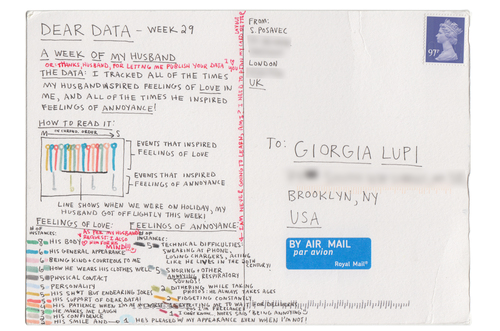 DEAR DATA - WEEK 29
A WEEK OF MY HUSBAND
OR: THANKS, HUSBAND, FOR LETTING ME PUBLISH YOUR DATA
THE DATA: I TRACKED ALL OF THE TIMES
MY HUSBAND INSPIRED FEELINGS OF LOVE IN
ME, AND ALL OF THE TIMES HE INSPIRED
FEELINGS OF ANNOYANCE!
HOW TO READ IT:
M IN CHRONO. ORDER S
EVENTS THAT INSPIRED
FEELINGS OF LOVE
EVENTS THAT INSPIRED
FEELINGS OF ANNOYANCE
LINE SHOWS WHEN WE WERE ON HOLIDAY, MY
HUSBAND GOT OFF LIGHTLY THIS WEEK!
FEELINGS OF LOVE:
# OF INSTANCES:
AS PER MY HUSBAND'S
REQUEST: I ALSO
MIND
HIS BODY
6 HIS GENERAL APPEARANCE
6 BEING KIND + COURTEOUS TO ME
6 HOW HE WEARS HIS CLOTHES WELL
5 PHYSICAL CONTACT
5 PERSONALITY
5 HIS SH*T BUT ENDEARING JOKES
HIS SUPPORT OF DEAR DATA!
HIS PATIENCE WHEN I'M
HE MAKES ME LAUGH
HIS SMILE AND
FEELINGS OF ANNOYANCE:
# OF INSTANCES:
5 TECHNICAL DIFFICULTIES
SWEARING AT PHONE,
LOSING CHARGERS, ACTING
LIKE HE LIVES IN THE 20TH
CENTURY!
5 SNORING + OTHER
ANNOYING RESPIRATORY
SOUNDS!
2 DITHERING WHILE TAKING
PHOTOS: HE ALWAYS TAKES AGES
2 FIDGETING CONSTANTLY
1 HE'S PLEASED W/ MY APPEARANCE EVEN WHEN I'M NOT!
FROM:
S. POSAVEC
LONDON
UK
97P
TO: GIORGIA LUPI
BROOKLYN, NY
USA
BY AIR MAIL
par avion
Royal Mail